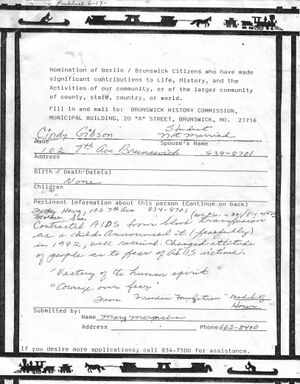 Publish 6-17-
Nomination of Berlin / Brunswick Citizens who have made
significant contributions to Life, History, and the
Activities of our community, or of the larger community
of county, state, country, or world.
Fill in and mail to: BRUNSWICK HISTORY COMMISSION,
MUNICIPAL BUILDING, 20 "A" STREET, BRUNSWICK, MD. 21716
Cindy Gibson Student Not Married
Name Spouse's Name
102 7th Ave Brunswick 834-8701
Address
Birth / Death-Date(s)
None
Children
Pertinent information about this person (Continue on back)
Harry 102 7th Ave 834-8701
Contracted AIDS from blood transfusion
as a child. Announced it (fearfully)
in 1992, well received. Changed attitude
of people as to fear of AIDS victims.
"Victory of the human spirit"
"Courage over fear"
From
Submitted by:
Name Mary Margrabe
Address Phone 662-8440
If you desire more applications call 834-7500 for assistance.